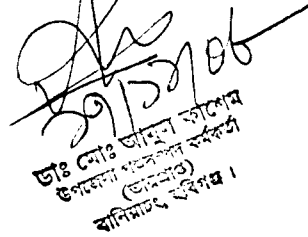 ২৭/১২/০৮
ডাঃ মোঃ আবুল কাশেম
উপজেলা পশুসম্পদ কর্মকর্তা
(ভারপ্রাপ্ত)
বানিয়াচং, হবিগঞ্জ ।